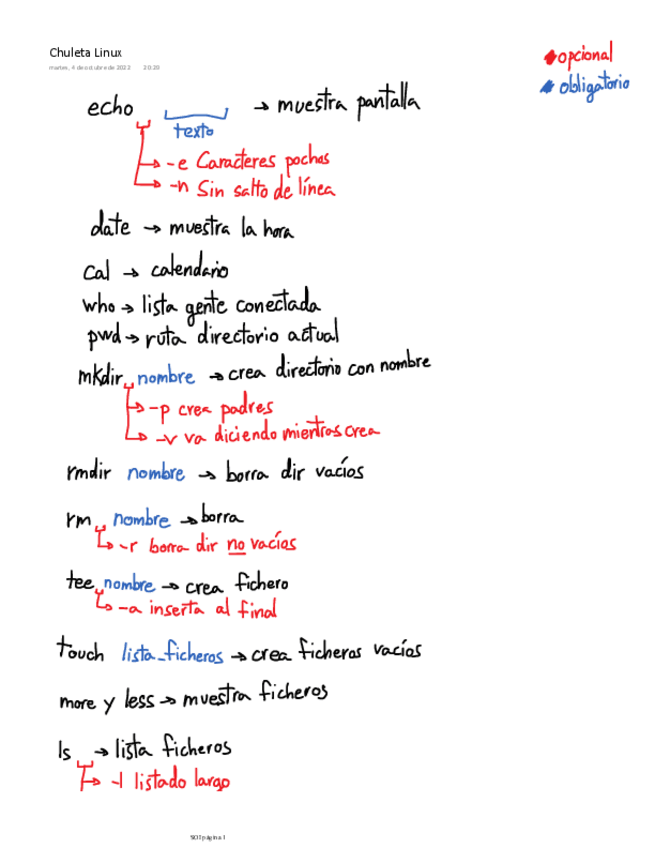 Chuleta Linux
martes, 4 de octubre de 2022 20:20
opcional
obligatorio
echo texto → muestra pantalla
→ -e Caracteres pochos
→ -n Sin salto de línea
date → muestra la hora
cal → calendario
who → lista gente conectada
pwd → ruta directorio actual
mkdir nombre → crea directorio con nombre
→ -p crea padres
→ -v va diciendo mientras crea
rmdir nombre → borra dir vacíos
rm nombre → borra
→ -r borra dir no vacíos
tee nombre → crea fichero
→ -a inserta al final
touch lista_ficheros → crea ficheros vacíos
more y less → muestra ficheros
ls → lista ficheros
→ -l listado largo
página 1